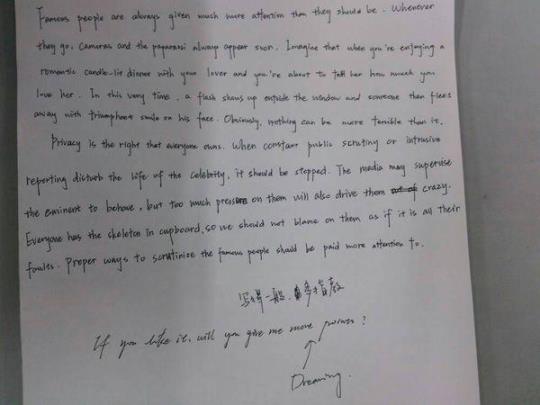 Famous people are always given much more attention than they should be. Whenever
they go, cameras and the paparassi always appear soon. Imagine that when you're enjoying a
romantic candle-lit dinner with your lover and you're about to tell her how much you
love her. In this very time, a flash shows up outside the window and someone then flees
away with triumphant smile on his face. Obviously, nothing can be more terrible than it.
Privacy is the right that everyone owns. When constant public scrutiny or intrusive
reporting disturb the life of the celebrity, it should be stopped. The media may supervise
the eminent to behave, but too much pressure on them will also drive them crazy.
Everyone has the skeleton in cupboard, so we should not blame on them as if it is all their
foules. Proper ways to scrutinize the famous people should be paid more attention to.
写得一般，多指教
If you like it, will you give me more ?
Dreaming.